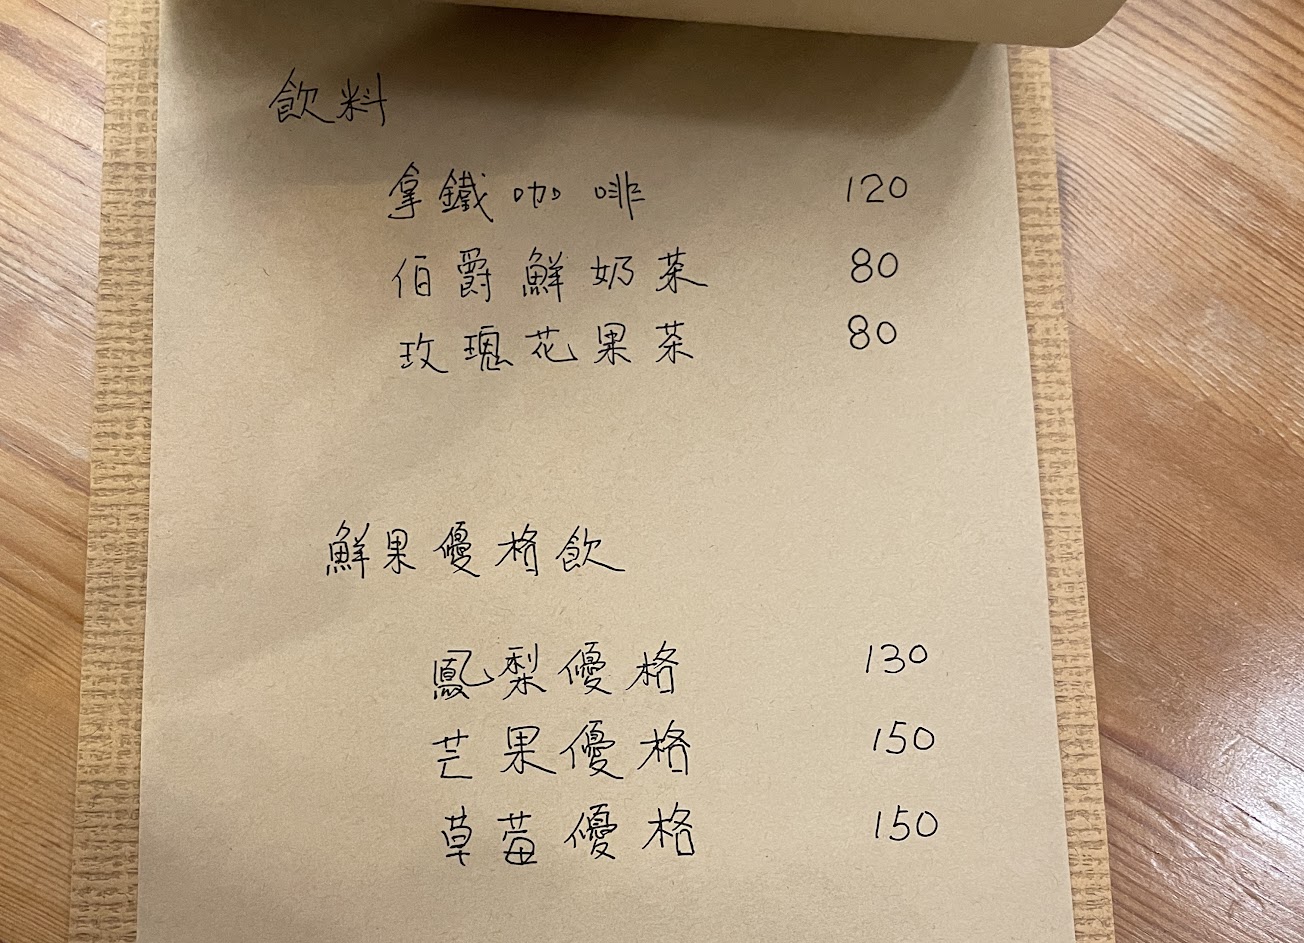 飲料
拿鐵咖啡 120
伯爵鮮奶茶 80
玫瑰花果茶 80
鮮果優格飲
鳳梨優格 130
芒果優格 150
草莓優格 150